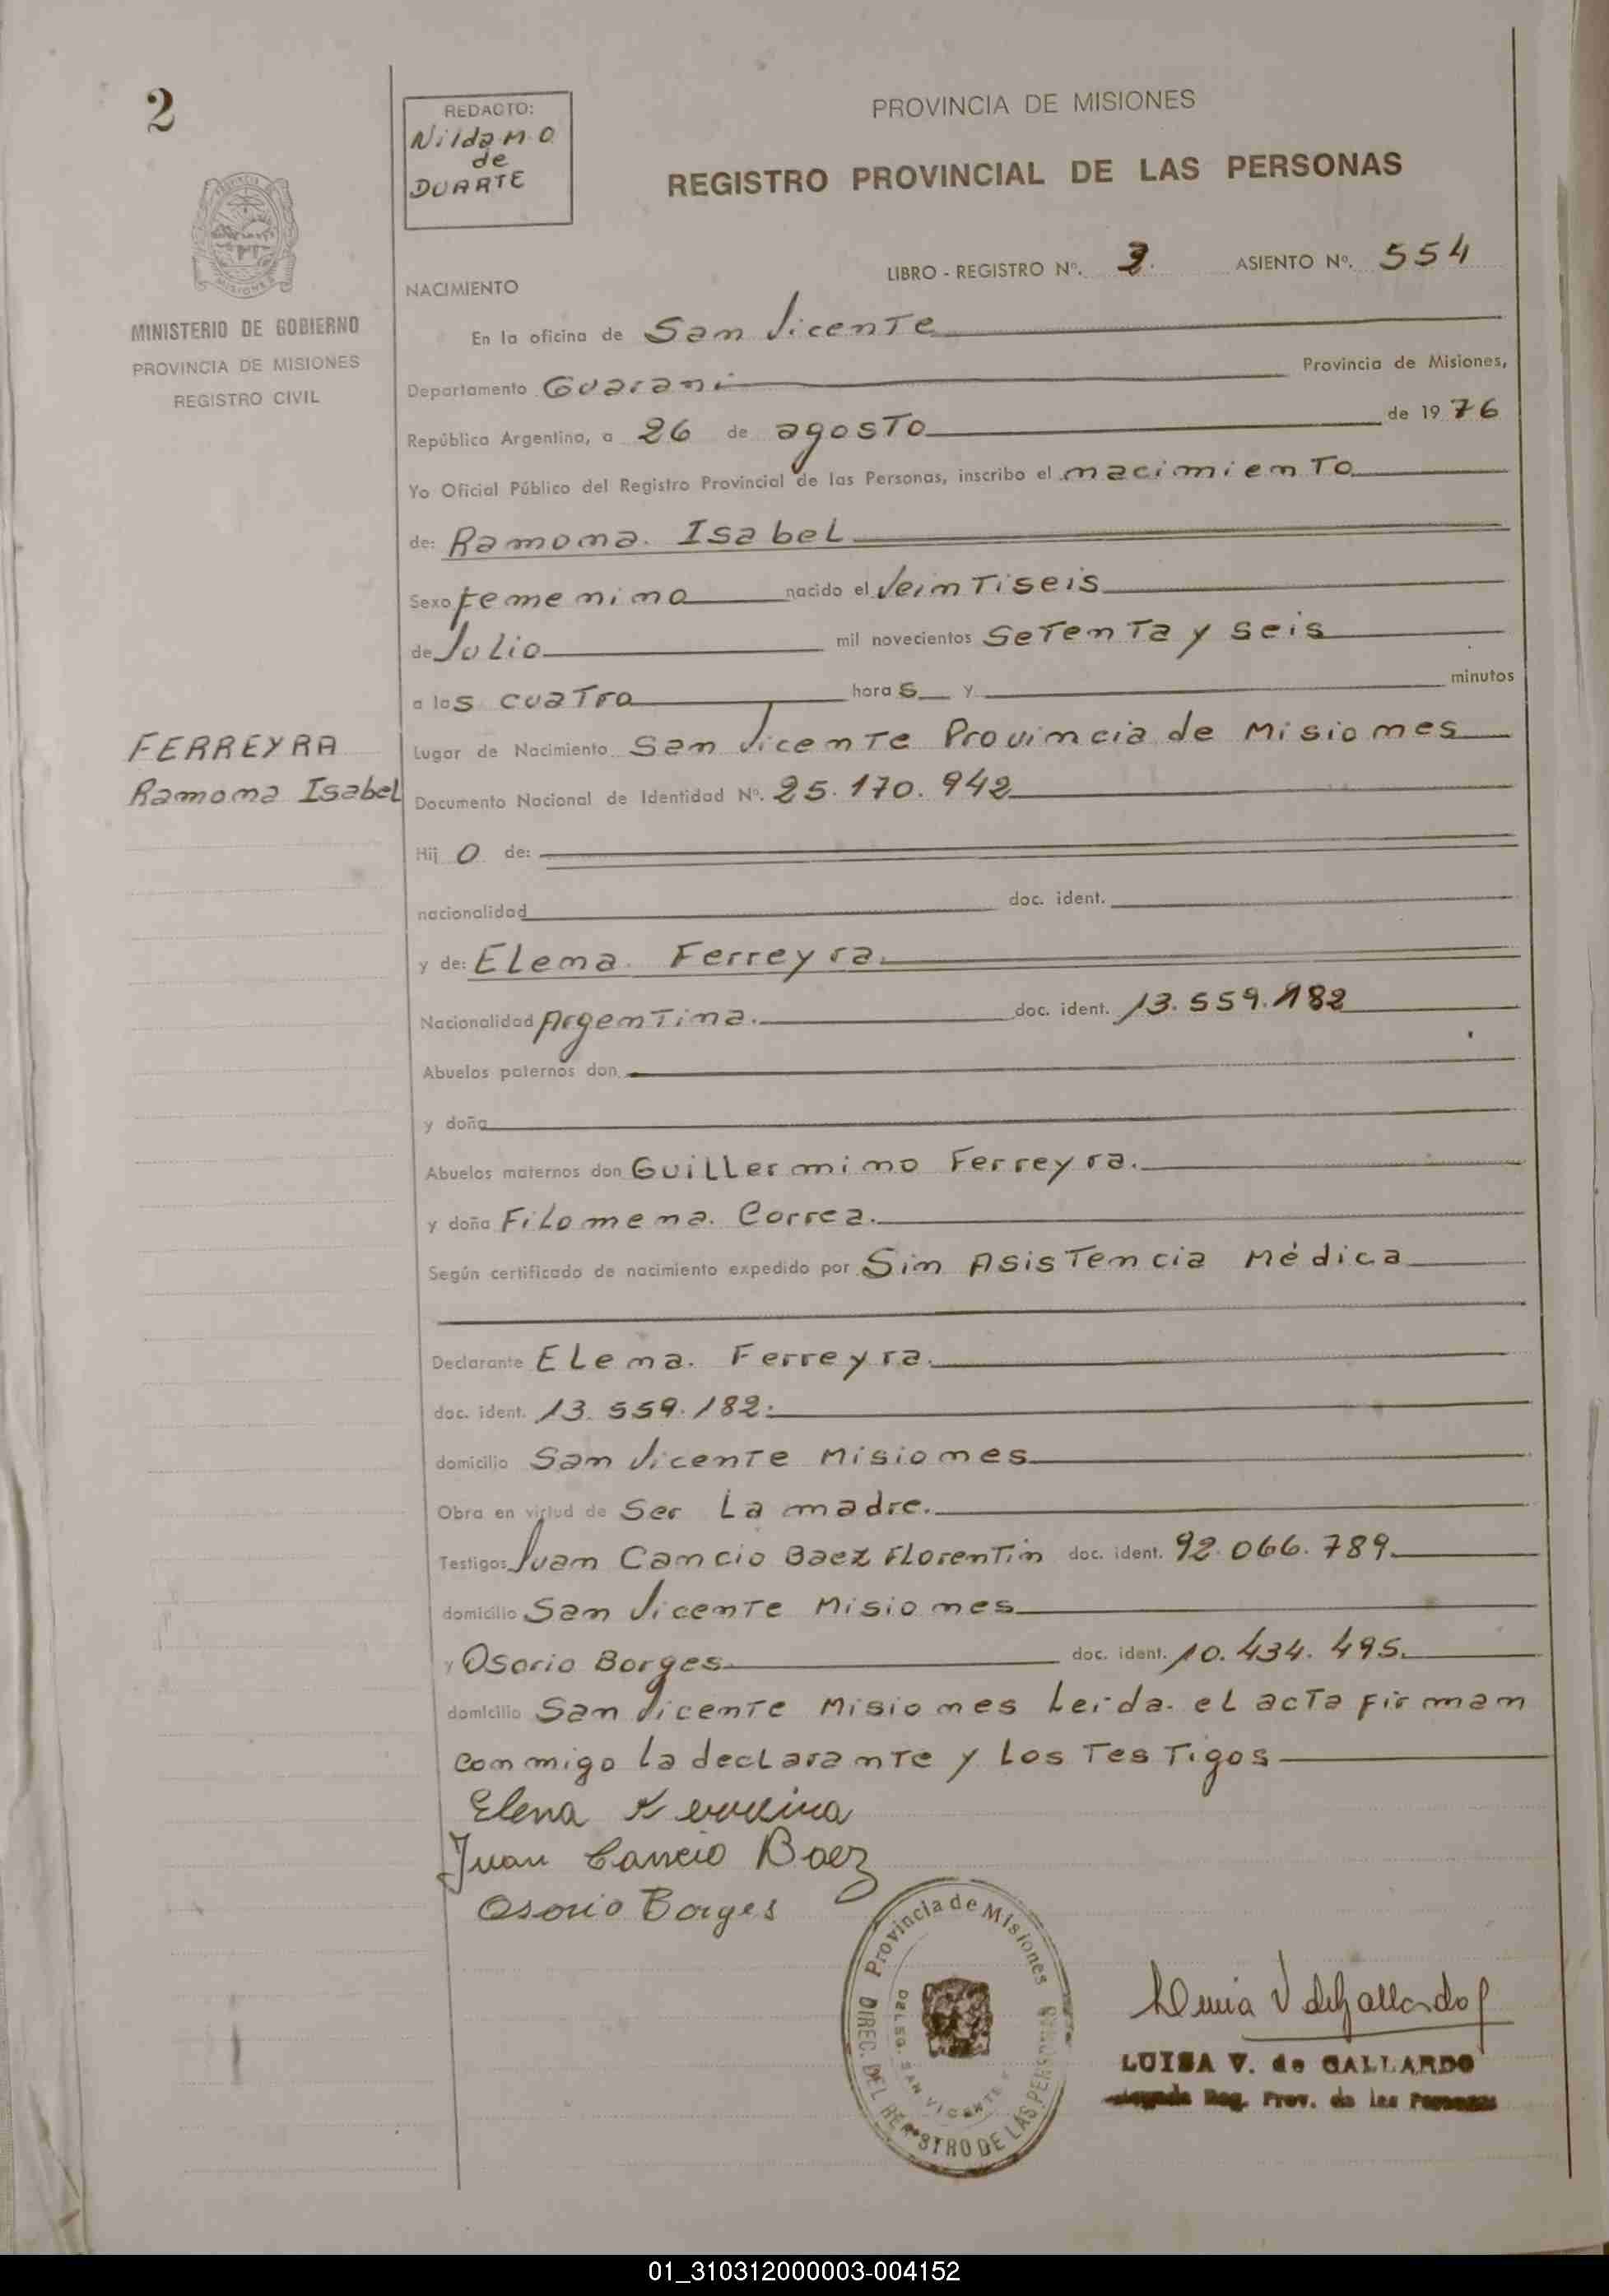 2
REDACTO:
Nilda M. O
de
DUARTE
PROVINCIA DE MISIONES
REGISTRO PROVINCIAL DE LAS PERSONAS
MINISTERIO DE GOBIERNO
PROVINCIA DE MISIONES
REGISTRO CIVIL
LIBRO - REGISTRO Nº. 3. ASIENTO Nº. 554
NACIMIENTO
En la oficina de San Vicente
Departamento Guarani Provincia de Misiones,
República Argentina, a 26 de agosto de 1976
Yo Oficial Público del Registro Provincial de las Personas, inscribo el nacimiento
de: Ramona Isabel
Sexo femenino nacido el Veintiseis
de Julio mil novecientos Setenta y seis
a las cuatro horas y minutos
FERREYRA
Ramona Isabel
Lugar de Nacimiento San Vicente Provincia de Misiones
Documento Nacional de Identidad Nº. 25.170.942
Hij o de:
nacionalidad doc. ident.
y de: Elena Ferreyra
Nacionalidad Argentina. doc. ident. 13.559.182
Abuelos paternos don
y doña
Abuelos maternos don Guillermino Ferreyra.
y doña Filomena Correa.
Según certificado de nacimiento expedido por Sin Asistencia Médica
Declarante Elena Ferreyra.
doc. ident. 13.559.182.
domicilio San Vicente Misiones
Obra en virtud de Ser La madre.
Testigos Juan Cancio Baez Florentin doc. ident. 92.066.789
domicilio San Vicente Misiones
y Osorio Borges doc. ident. 10.434.495.
domicilio San Vicente Misiones Leida el acta firman
conmigo la declarante y Los Testigos
Elena Ferreira
Juan Cancio Baez
Osorio Borges
Provincia de Misiones
DIREC. DEL REGISTRO DE LAS PERSONAS
DELEG. SAN VICENTE
LUISA V. de GALLARDO
Reg. Prov. de las Personas
01_310312000003-004152